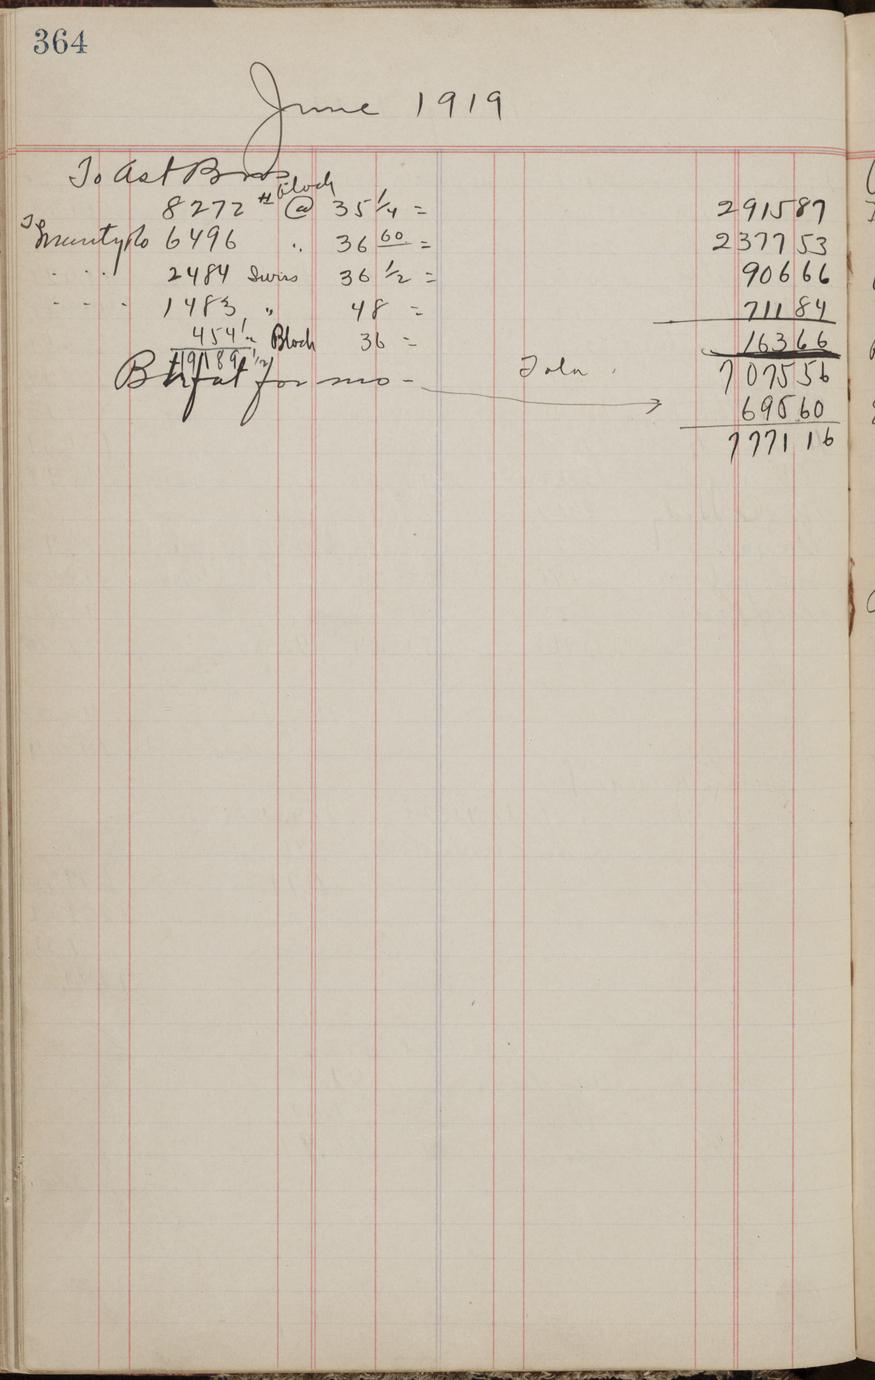 364
June 1919
To Ast Bros
8272 # Block @ 35 1/4 = 2915 87
To 6496 " 36 60 = 2377 53
" " 2484 Swiss 36 1/2 = 906 66
" " " 1483 " 48 = 711 84
454 1/2 Block 36 = 163 66
19189 1/2
7075 56
Btrfat for mo - 695 60
7771 16